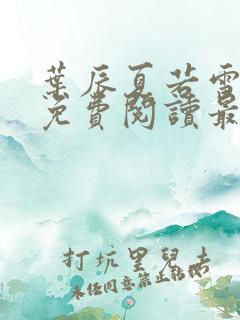 葉辰夏若雪
免費閱讀最
打坑里兒去
未经同意禁止转载